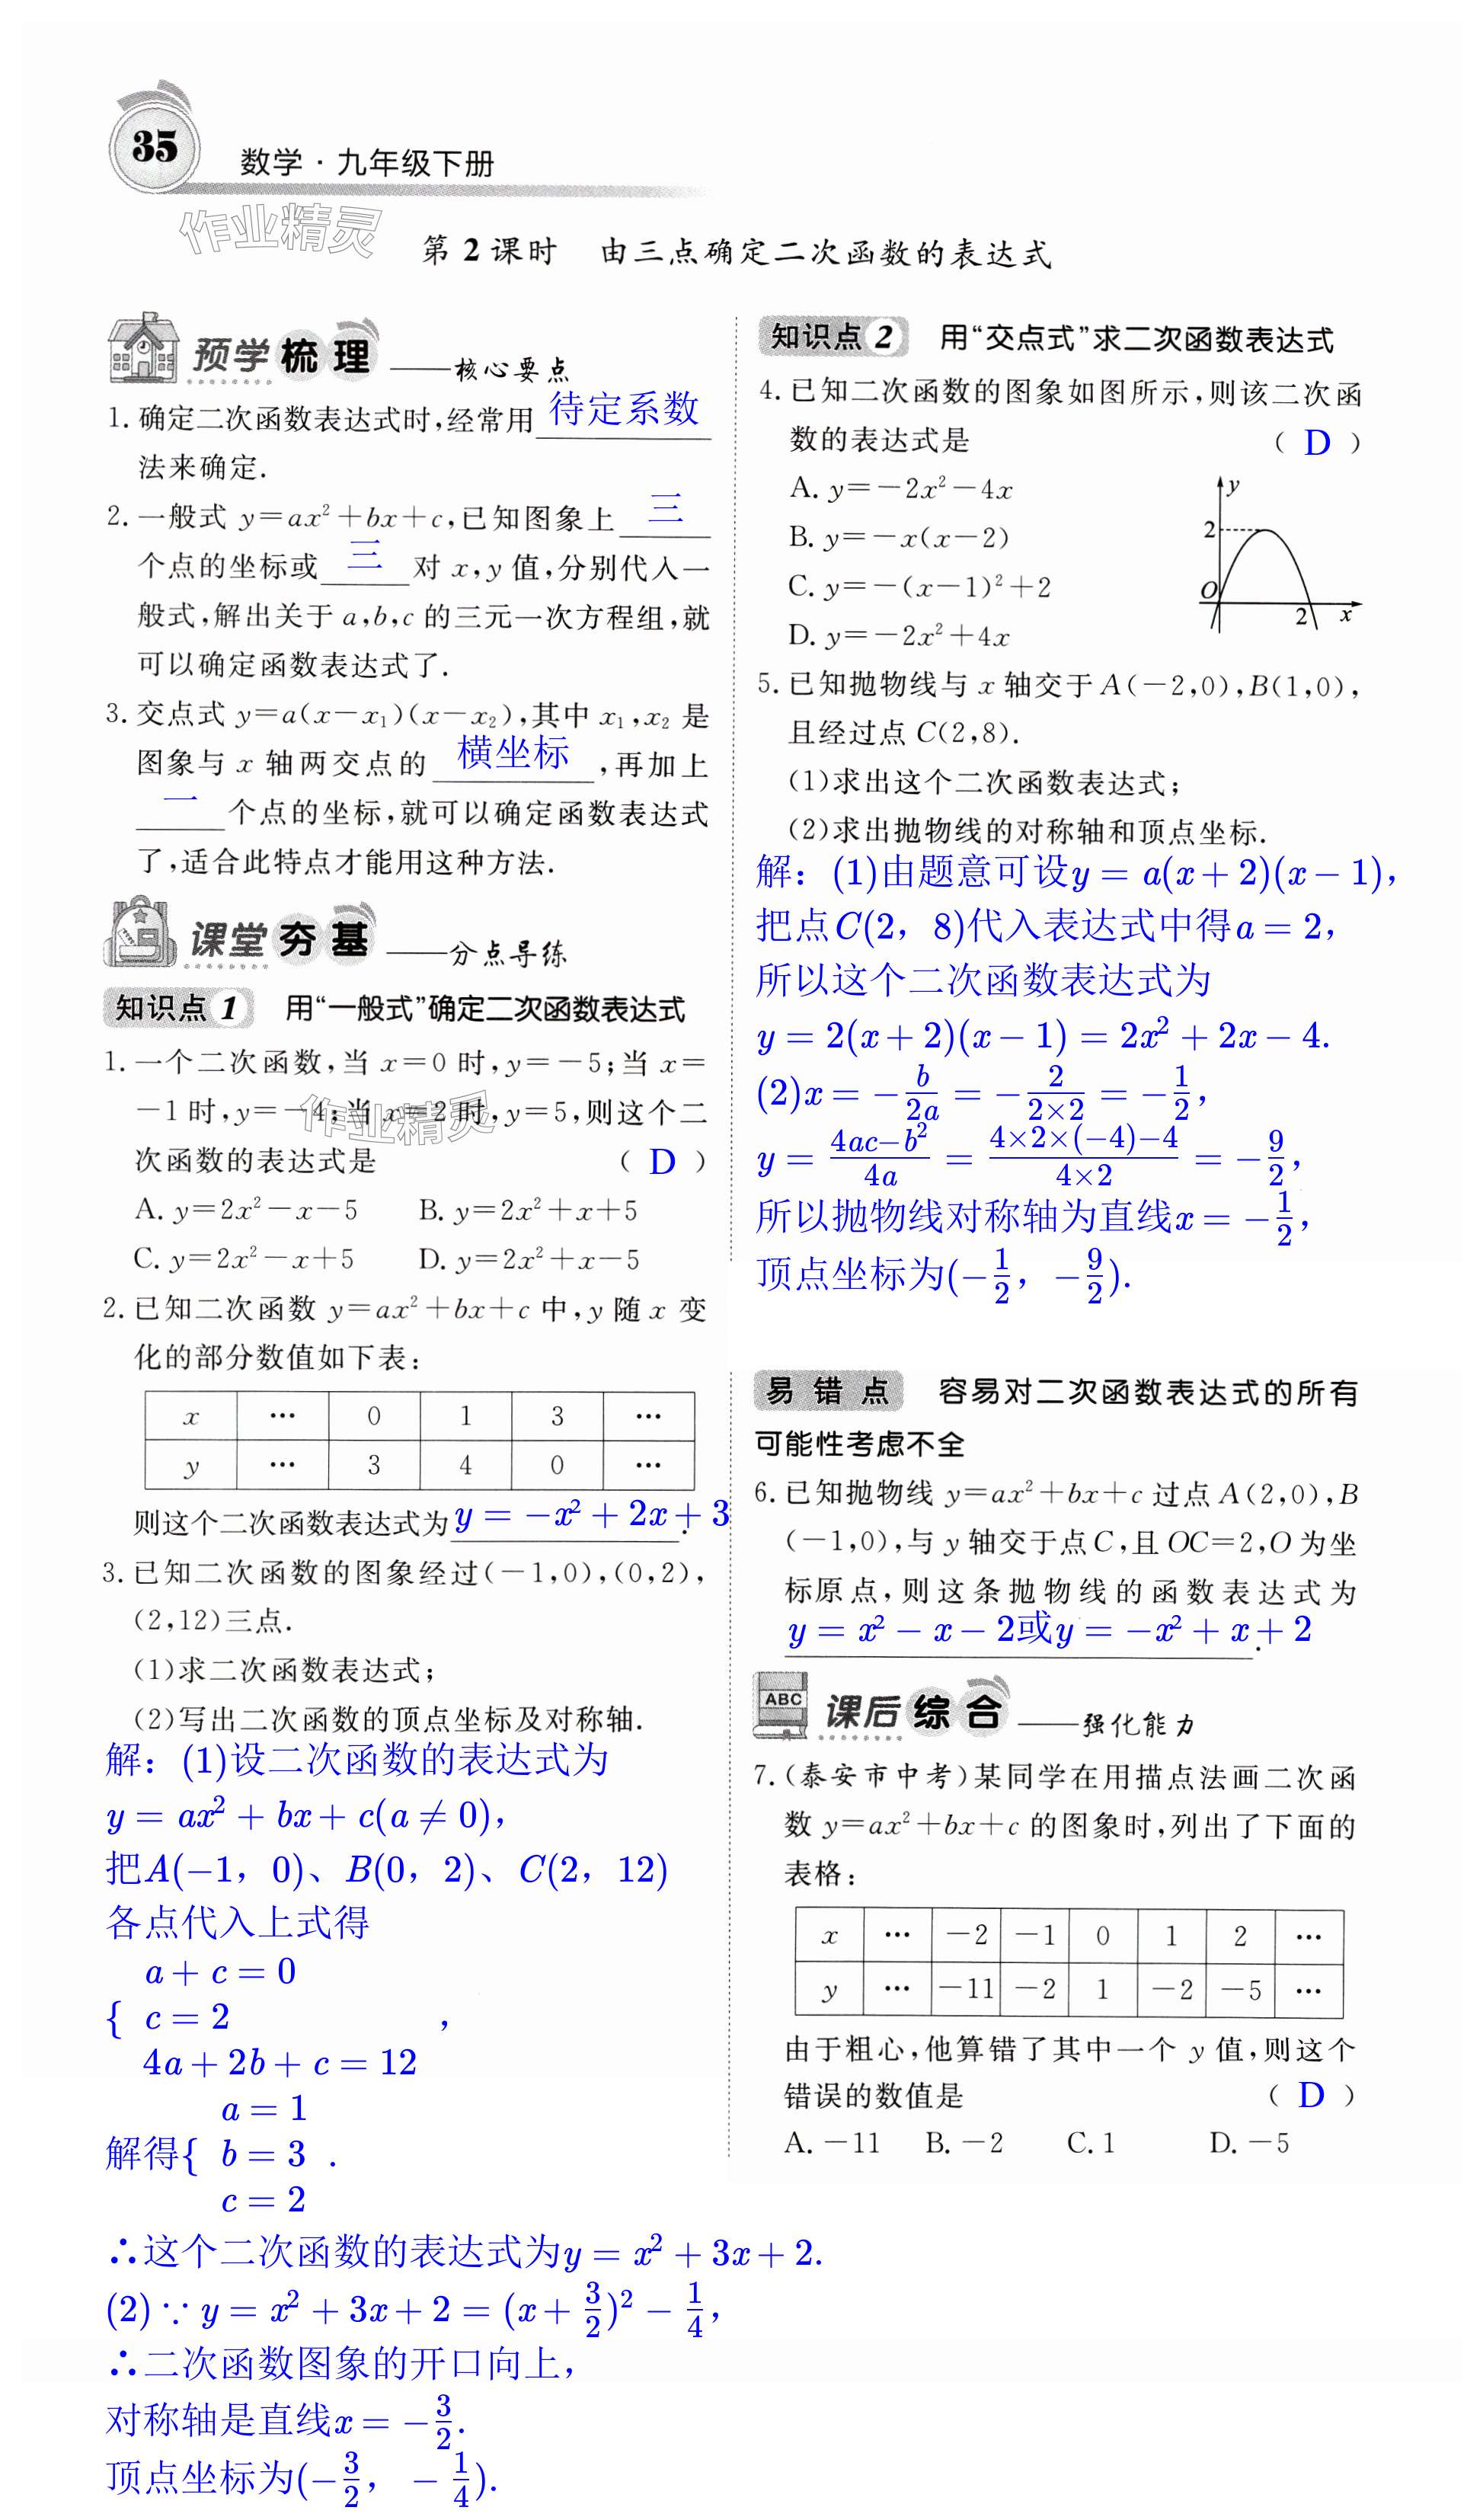 35
数学·九年级下册
作业精灵
第2课时 由三点确定二次函数的表达式
预学梳理——核心要点
1.确定二次函数表达式时,经常用待定系数
法来确定.
2.一般式 y=ax²+bx+c,已知图象上三
个点的坐标或三对 x,y 值,分别代入一
般式,解出关于 a,b,c 的三元一次方程组,就
可以确定函数表达式了.
3.交点式 y=a(x-x₁)(x-x₂),其中 x₁,x₂ 是
图象与 x 轴两交点的横坐标,再加上
一个点的坐标,就可以确定函数表达式
了,适合此特点才能用这种方法.
课堂夯基——分点导练
知识点1 用“一般式”确定二次函数表达式
1.一个二次函数,当 x=0 时,y=-5;当 x=
-1 时,y=-4;当 x=2 时,y=5,则这个二
作业精灵
次函数的表达式是 ( D )
A. y=2x²-x-5 B. y=2x²+x+5
C. y=2x²-x+5 D. y=2x²+x-5
2.已知二次函数 y=ax²+bx+c 中,y 随 x 变
化的部分数值如下表:
x … 0 1 3 …
y … 3 4 0 …
则这个二次函数表达式为y=-x²+2x+3.
3.已知二次函数的图象经过(-1,0),(0,2),
(2,12)三点.
(1)求二次函数表达式;
(2)写出二次函数的顶点坐标及对称轴.
解：(1)设二次函数的表达式为
y=ax²+bx+c(a≠0)，
把A(-1，0)、B(0，2)、C(2，12)
各点代入上式得
a+c=0
{ c=2 ，
4a+2b+c=12
a=1
解得{ b=3 .
c=2
∴这个二次函数的表达式为y=x²+3x+2.
(2)∵y=x²+3x+2=(x+3/2)²-1/4，
∴二次函数图象的开口向上，
对称轴是直线x=-3/2.
顶点坐标为(-3/2，-1/4).
知识点2 用“交点式”求二次函数表达式
4.已知二次函数的图象如图所示,则该二次函
数的表达式是 ( D )
A. y=-2x²-4x
B. y=-x(x-2)
C. y=-(x-1)²+2
D. y=-2x²+4x
y
2
O
2 x
5.已知抛物线与 x 轴交于 A(-2,0),B(1,0),
且经过点 C(2,8).
(1)求出这个二次函数表达式;
(2)求出抛物线的对称轴和顶点坐标.
解：(1)由题意可设y=a(x+2)(x-1)，
把点C(2，8)代入表达式中得a=2，
所以这个二次函数表达式为
y=2(x+2)(x-1)=2x²+2x-4.
(2)x=-b/2a=-2/2×2=-1/2，
y=4ac-b²/4a=4×2×(-4)-4/4×2=-9/2，
所以抛物线对称轴为直线x=-1/2，
顶点坐标为(-1/2，-9/2).
易错点 容易对二次函数表达式的所有
可能性考虑不全
6.已知抛物线 y=ax²+bx+c 过点 A(2,0),B
(-1,0),与 y 轴交于点 C,且 OC=2,O 为坐
标原点,则这条抛物线的函数表达式为
y=x²-x-2或y=-x²+x+2.
ABC
课后综合——强化能力
7.(泰安市中考)某同学在用描点法画二次函
数 y=ax²+bx+c 的图象时,列出了下面的
表格:
x … -2 -1 0 1 2 …
y … -11 -2 1 -2 -5 …
由于粗心,他算错了其中一个 y 值,则这个
错误的数值是 ( D )
A. -11 B. -2 C. 1 D. -5